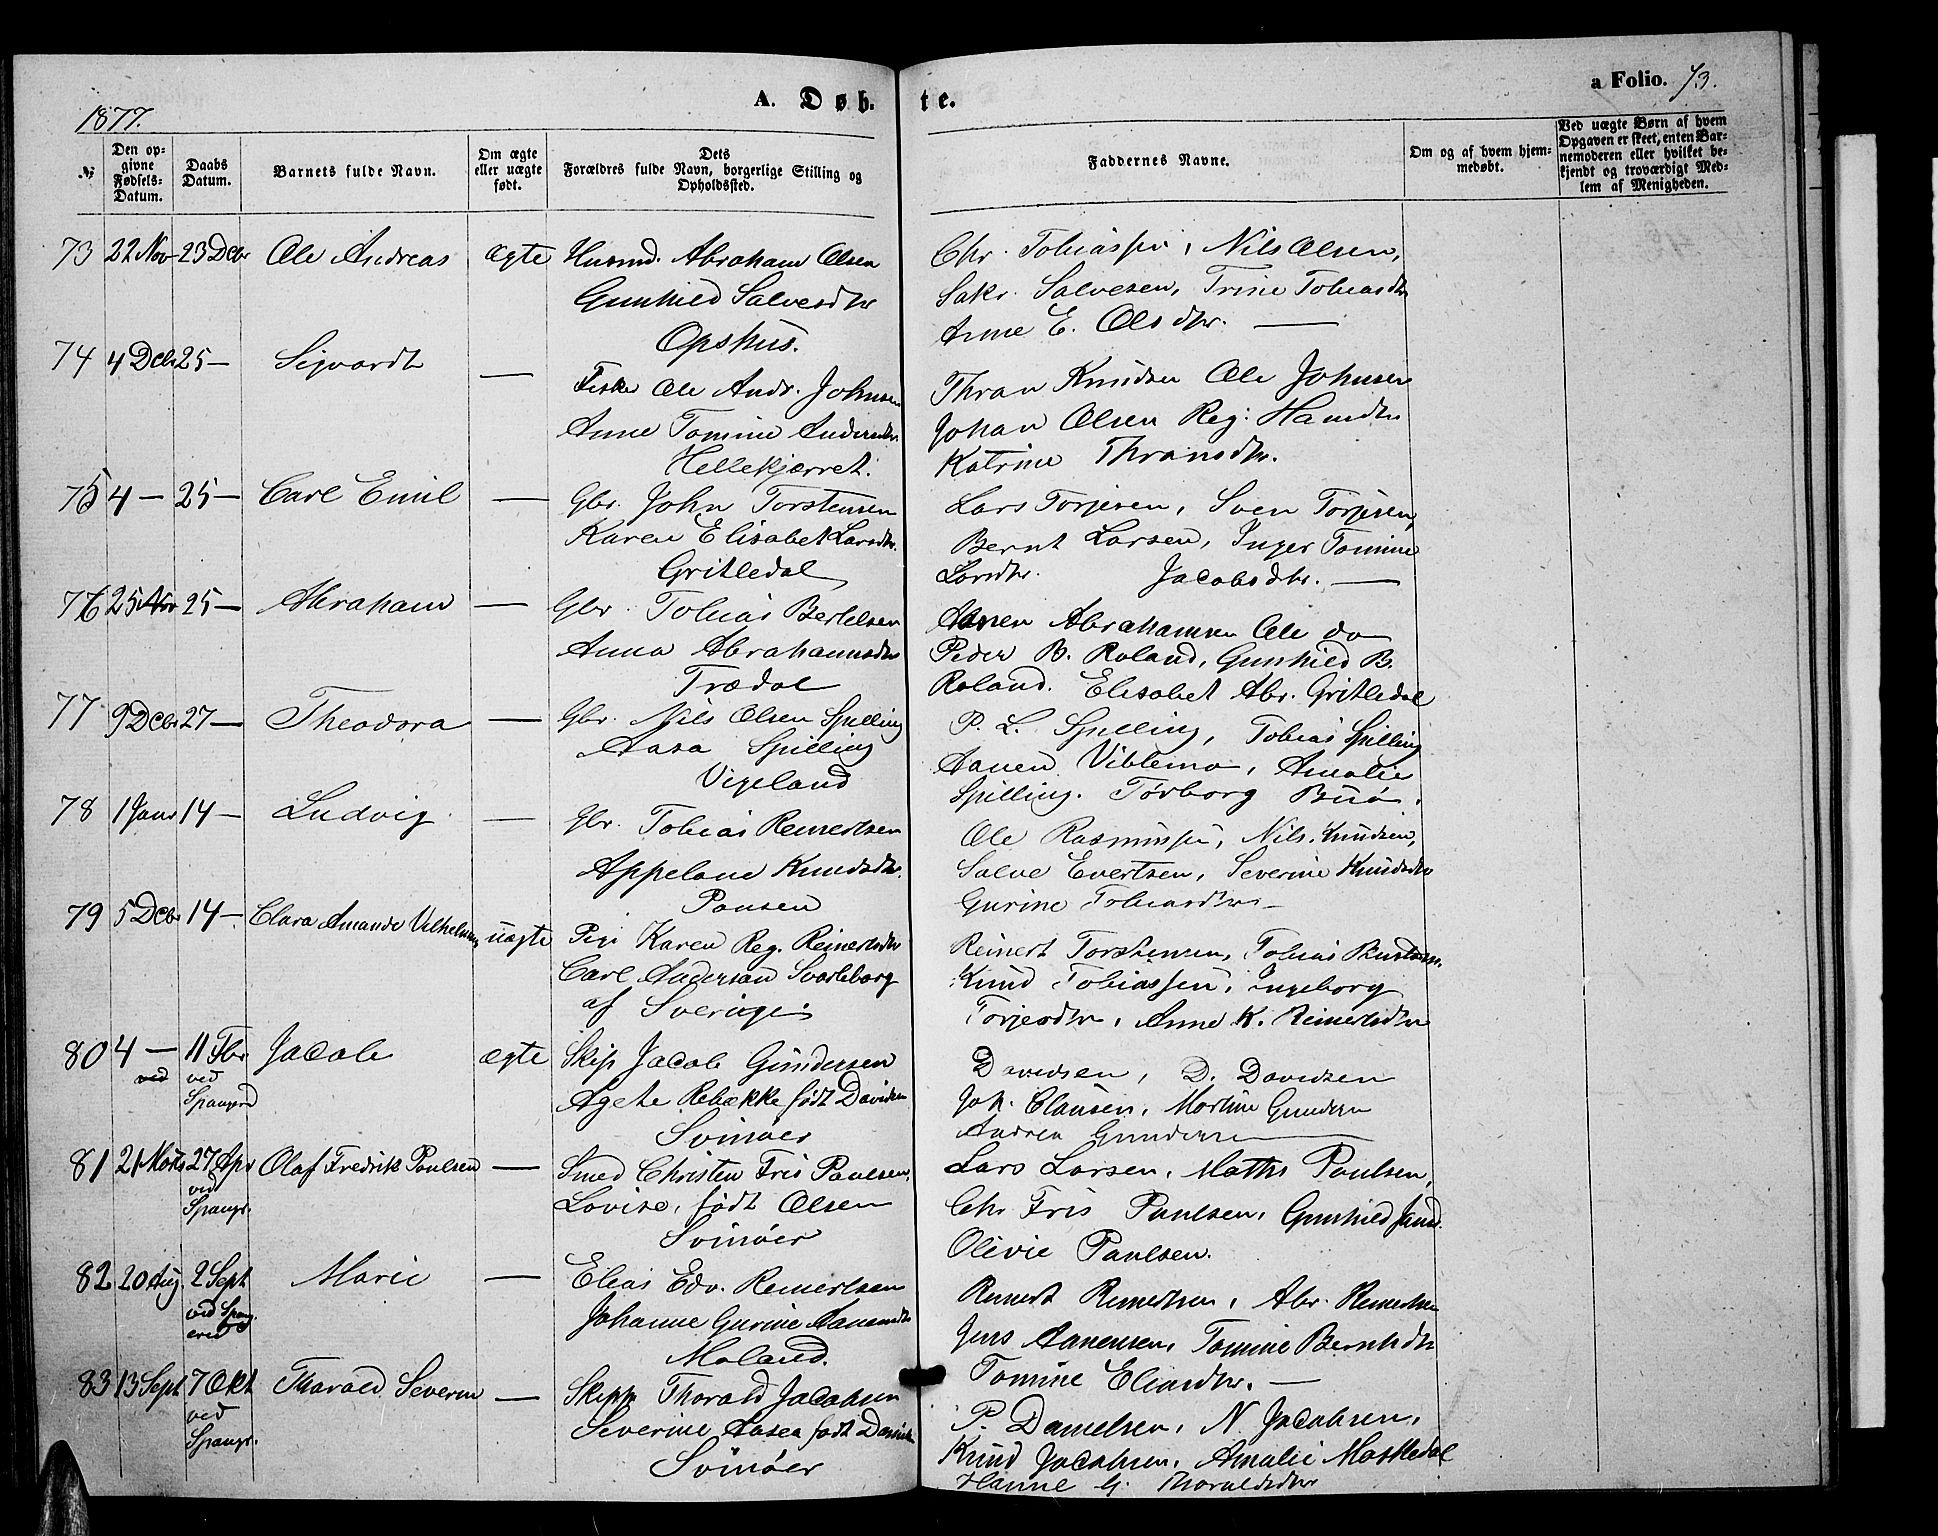 1877.
A. Døb-
te.
a Folio. 73.
№
Den op-
givne
Fødsels-
Datum.
Daabs
Datum.
Barnets fulde Navn.
Om ægte
eller uægte
født.
Dets
Forældres fulde Navn, borgerlige Stilling og
Opholdssted.
Faddernes Navne.
Om og af hvem hjem-
medøbt.
Ved uægte Børn af hvem
Opgaven er skeet, enten Bar-
nemoderen eller hvilket be-
kjendt og troværdigt Med-
lem af Menigheden.
73 22 Nov 23 Dcbr Ole Andreas ægte Husmd. Abraham Olsen
Gunhild Salvesdtr
Opshus.
Chr. Tobiassen, Nils Olsen,
Sakr. Salvesen, Trine Tobiasdtr
Anne E. Olsdtr. —
74 4 Dcbr 25 — Sigvardt — Fisker Ole Andr. Johnsen
Anne Tomine Andersdtr.
Hellekjærret.
Thran Knudsen Ole Johnsen
Johan Olsen Reg: Hansdtr
Katrine Thransdtr.
75 4 — 25 — Carl Emil — Gbr. John Torstensen
Karen Elisabet Larsdtr.
Gritledal
Lars Torjesen, Sven Torjesen,
Bernt Larsen, Inger Tomine
Larsdtr. Jacobsdtr. —
76 25 Nov 25 — Abraham — Gbr. Tobias Bertelsen
Anna Abrahamsdtr
Trædal
Aanen Abrahamsen Ole do
Peder B. Roland, Gunhild B.
Roland. Elisabet Abr. Gritledal
77 9 Dcbr 27 — Theodora — Gbr. Nils Olsen Spilling
Aasa Spilling
Vigeland
P. L. Spilling, Tobias Spilling
Aanen Viblemo, Amalie
Spilling. Torborg Buø.
78 1 Janr 14 — Ludvig — Gbr. Tobias Reinertsen
Appelone Knudsdtr.
Pousen
Ole Rasmussen, Nils Knudsen,
Salve Evertsen, Severine Knudsdtr
Gurine Tobiasdtr —
79 5 Dcbr 14 — Clara Amande Vilhelmine uægte Pige Karen Reg. Reinertsdtr
Carl Anderson Svarteborg
af Sverige
Reinert Torstensen, Tobias
Knud Tobiassen, Ingeborg
Torjesdtr, Anne K. Reinertsdtr
80 4 — 11 Fbr Jacob ægte Skip Jacob Gundersen
ved
ved
Spangerd
Agete Rebække født Davidsen
Svinøer
Davidsen, D. Davidsen
Joh. Clausen, Martine Gundersen
Andrea Gundersen —
81 21 Marts 27 Apr Olaf Fredrik Poulsen — Smed Christen Fris Paulsen,
ved
Spangr.
Lovise, født Olsen
Svinøer
Lars Larsen, Maths Paulsen,
Chr Fris Paulsen, Gunhild Jansd.
Olivie Paulsen.
82 20 Aug. 2 Sept Marie — Elias Edv. Reinertsen
ved Spang
ereid
Johanne Gurine Aanensdtr
Moland.
Reinert Reinertsen, Abr. Reinertsen
Jens Aanensen, Tomine Berntsdtr
Tomine Eliasdtr. —
83 13 Sept 7 Okt Thorald Severin — Skipp Thorald Jacobsen
ved
Spangr.
Severine Aasea født Danielsen
Svinøer
P. Danielsen, N. Jacobsen,
Knud Jacobsen, Amalie Moskedal
Hanne G. Thoraldsdtr